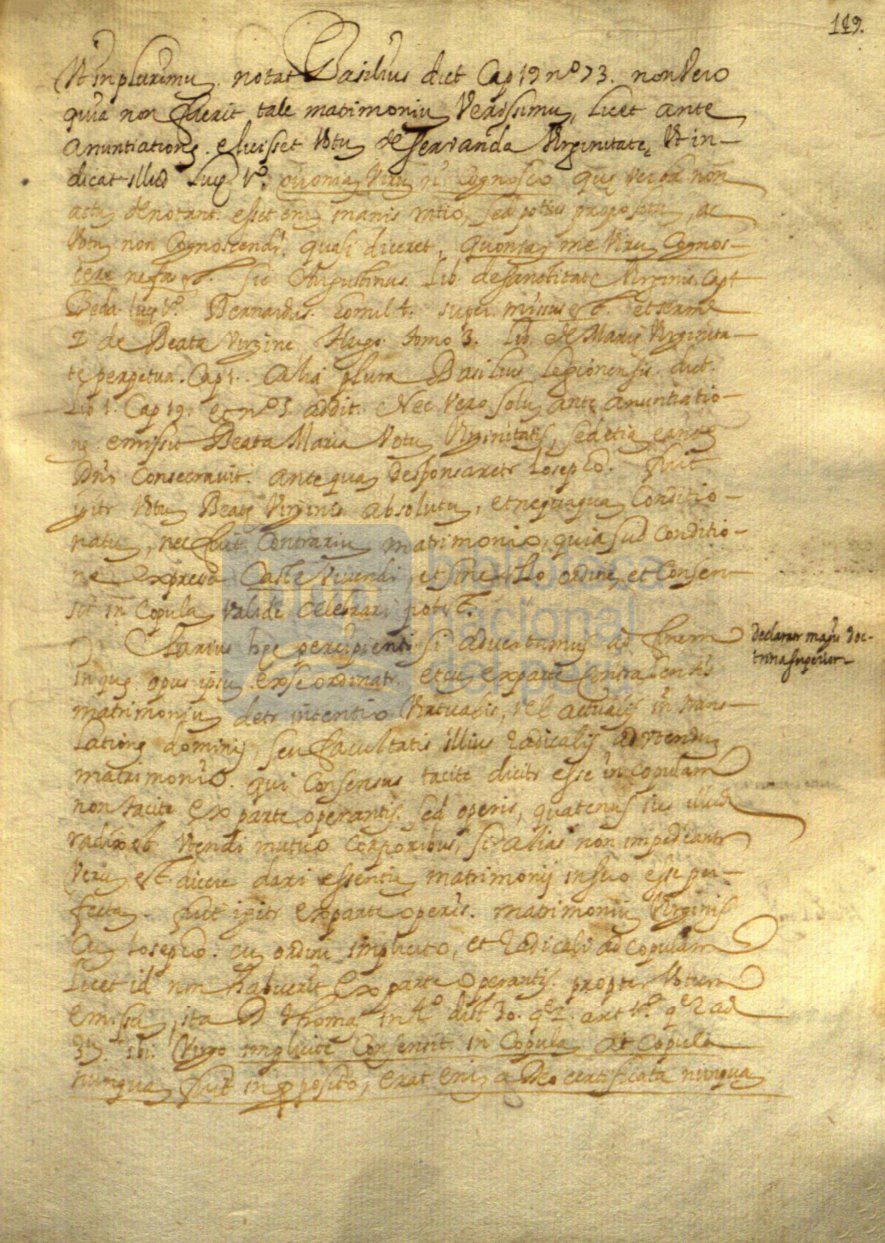 119.
Ut in plurimũ notat Basilius dict Cap 19 nº 73. non Vero
quia non fuerit tale matrimoniũ Verissimũ, licet ante
Anuntiationẽ elicisset Votũ de servanda Virginitatẽ, Ut in-
dicat illud Luc̨ 1º. quoniaɱ Virũ nõ cognosco quę verba non
actũ denotant. esset eniɱ inanis ratio, sed potius propositũ, ac
Votũ non Cognoscendi. quasi diceret, quoniaɱ me Virũ Cognos-
cere nefas est. Sic Augustinus Lib. de Sanctitate Virginis. Cap 4
Beda Luc̨ 1º. Bernardus homil 4. super missus est. et serm
2 de Beata Virgine Hugo tomo 3. Lib. de Marię Virginita-
te perpetua. Cap 1. Alia plura Basilius legionensis. dict.
Lib 1. Cap 19. et nº 5 addit. Nec Vero solũ ante anuntiatio-
nẽ emissit Beata Maria Votũ Virginitatis, sed etiã eandẽ
Dñõ Consecravit. antequã desponsaretr Iosepho. Fuit
igitr Votũ Beatę Virginis absolutũ, et nequaquã Conditio-
natũ, nec fuit Contrariũ matrimonio, quia sub conditio-
ne expressa Caste Vivendi, et sine illo ordine, et Consen-
su in Copulã valide celebrari potest.
Clarius hęc percipienti si advertamus ad finem
in quẽ opus ipsũ ex se ordinatr. et cũ ex parte Contrahentis
matrimoniũ detr intentio Virtualis, vel actualis in trans-
lationẽ dominij seu facultatis illius radicalis ad Utendũ
matrimonio. qui Consensus tacite dicitr esse in copulam
non tacite ex parte operantis. sed operis, quatenus ius illud
radix est Utendi mutuo Corporibus, si alias non impedirẽtr
Verũ est dicere dari essentiã matrimonij in suo esse per-
fectã. fuit igitr ex parte operis. matrimoniũ Virginis
Ac Iosepho. cũ ordine implicito, et radicali ad copulam
licet id non habuerit ex parte Operantis. propter Votum
emissũ, ita D Thomas in 4º dist 30. qę 2. art 1º. qę 2 ad
3ũ ibi. Virgo implicite Consensit in Copulã At copula
nunquã fuit in pposito, erat enĩ a Deo certificata nunquã
declaratur magis doc-
trina superior